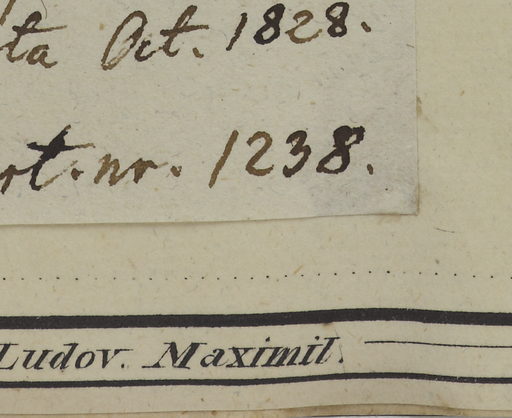 ta Oct. 1828.
rt. nr. 1238.
Ludov. Maximil.